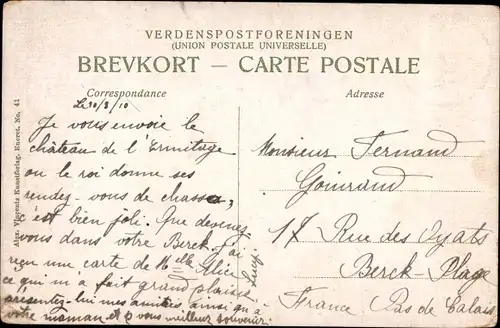 VERDENSPOSTFORENINGEN
(UNION POSTALE UNIVERSELLE)
BREVKORT — CARTE POSTALE
Correspondance
Adresse
Le 30/8/10
Je vous envoie le
château de l'Ermitage
ou le roi donne ses
rendez-vous de chasse,
c'est bien joli. Que devenez
vous dans votre Berck. J'ai
reçu une carte de Mlle Alice
ce qui m'a fait grand plaisir
présentez-lui mes amitiés ainsi qu'à
votre maman et vous meilleur souvenir.
Monsieur Fernand
Goinrand
17 Rue des Oyats
Berck-Plage
France Pas de Calais
Alex. Vincents Kunstforlag, Eneret. No. 41